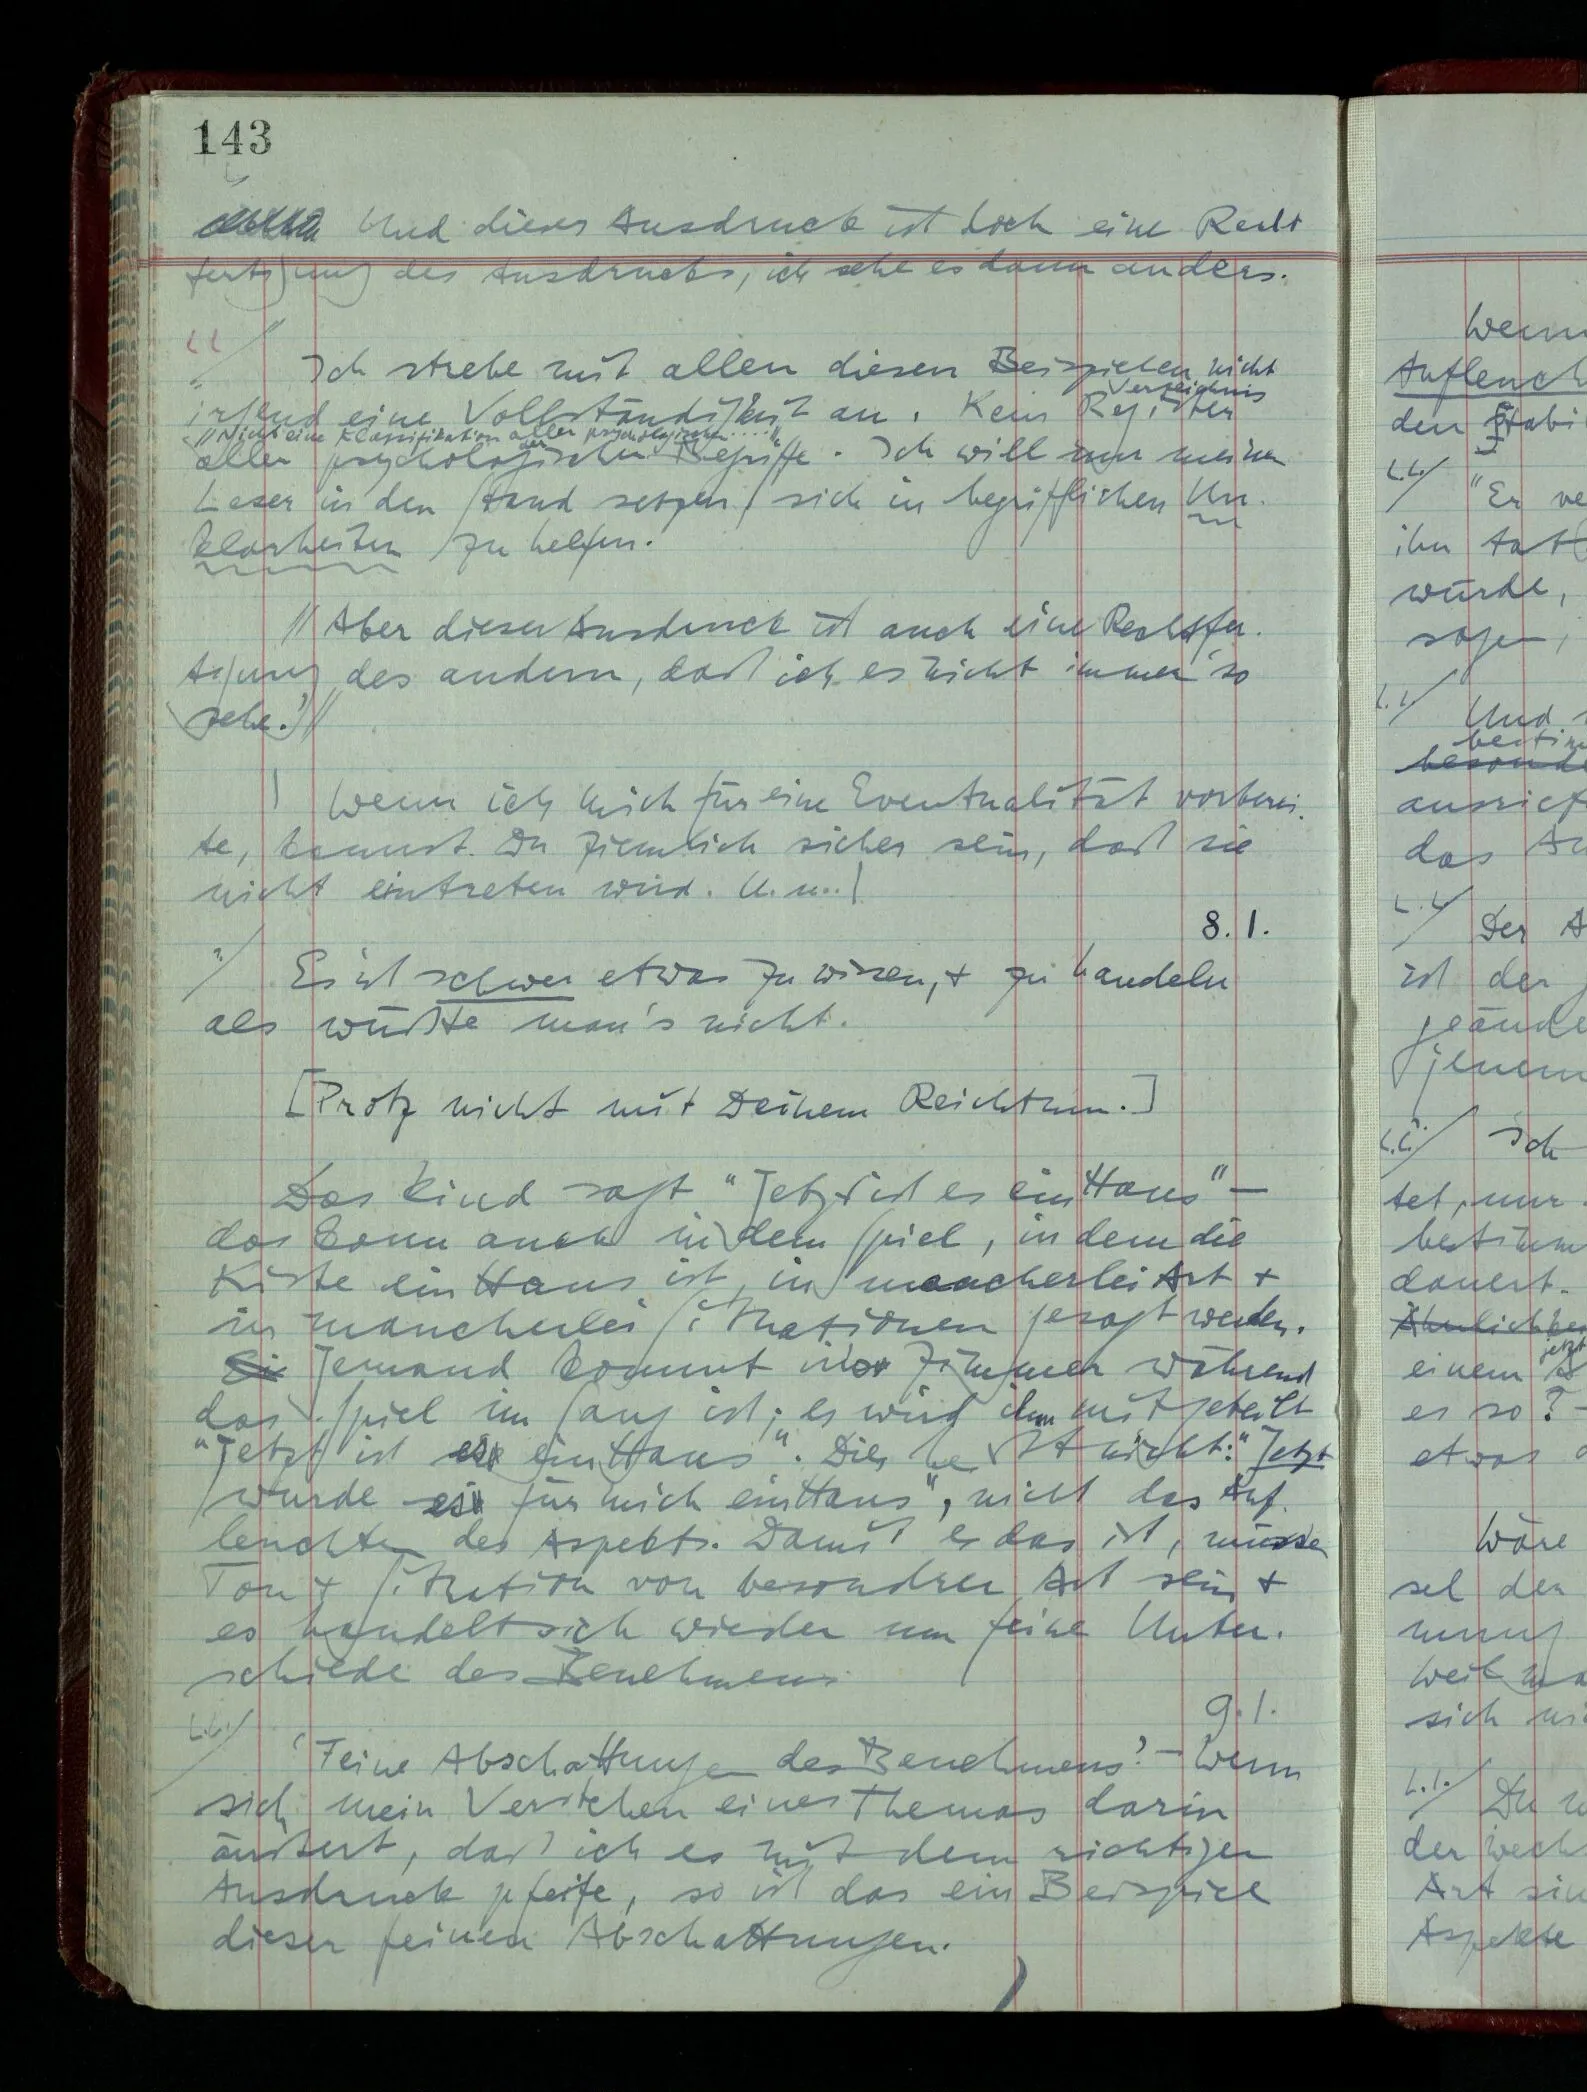 143
Und dieser Ausdruck ist doch eine Recht
fertigung des Ausdrucks, ich sehe es dann anders.
Ich strebe mit allen diesen Beispielen nicht
Verzeichnis
irgend eine Vollständigkeit an. Kein Register
//Nicht eine Klassifikation aller psychologischen ....//
der
aller psychologischen Begriffe. Ich will nur meinen
Leser in den Stand setzen sich in begrifflichen Un-
klarheiten zu helfen.
// Aber dieser Ausdruck ist auch eine Rechtfer-
tigung des andern, daß ich es nicht immer so
sehe.' //
| Wenn ich mich für eine Eventualität vorberei-
te, kannst Du ziemlich sicher sein, daß sie
nicht eintreten wird. U.u.. |
8.1.
? / Es ist schwer etwas zu wissen, + zu handeln
als wüßte man's nicht.
[Protz nicht mit Deinem Reichtum.]
Das Kind sagt "Jetzt ist es ein Haus" –
das kann auch in dem Spiel, in dem die
Kiste ein Haus ist, in mancherlei Art +
in mancherlei Situationen gesagt werden.
Jemand kommt ins Zimmer während
das Spiel im Gang ist; es wird ihm mitgeteilt
"Jetzt ist es ein Haus". Dies heißt nicht: "Jetzt
wurde es für mich ein Haus", nicht das Auf-
leuchten des Aspekts. Damit es das ist, müssen
Ton + Situation von besondrer Art sein +
es handelt sich wieder um feine Unter-
schiede des Benehmens
9.1.
L.L. / 'Feine Abschattungen des Benehmens.' – Wenn
sich mein Verstehen eines Themas darin
äußert, daß ich es mit dem richtigen
Ausdruck pfeife, so ist das ein Beispiel
dieser feinen Abschattungen.
Wenn
den
L.L. / "Er
ihn
würde,
sagen,
L.L. / Und
das
L.L. / Der
ist der
jenem
L.L. / Ich
tet, nur
dauert.
einem
jetzt
es so? –
etwas
Wäre
sel der
weil
sich
L.L. / Du
der
Art
Aspekte